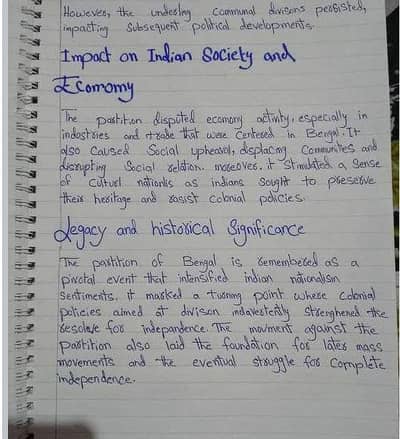 However, the underling Communal divisons persisted,
impacting Subsequent political developments.
Impact on Indian Society and
Economy
The partition disputed economy activity, especially in
industries and trade that were Centered in Bengal. It
also Caused Social upheavol, displacing Communites and
disrupting Social relation. moreover, it Stimulated a Sense
of Culturl nationlis as indians Sought to preserve
their heritage and rasist colonial policies.
Legacy and historical Significance
The partition of Bengal is remembered as a
pivotal event that intensified indian nationalism
Sentiments. it marked a turning point where Colonial
policies aimed at divison indavertently Strenghened the
resolve for independence. The movment against the
Partition also laid the foundation for later mass
movements and the eventual struggle for Complete
independence.